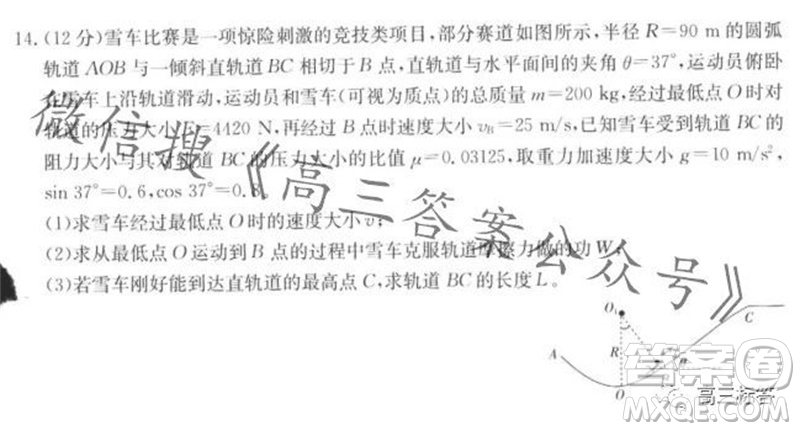 14.(12分)雪车比赛是一项惊险刺激的竞技类项目,部分赛道如图所示,半径R=90 m的圆弧
轨道AOB与一倾斜直轨道BC相切于B点,直轨道与水平面间的夹角θ=37°,运动员俯卧
在雪车上沿轨道滑动,运动员和雪车(可视为质点)的总质量m=200 kg,经过最低点O时对
轨道的压力大小F=4420 N,再经过B点时速度大小v_B=25 m/s,已知雪车受到轨道BC的
阻力大小与其对轨道BC的压力大小的比值μ=0.03125,取重力加速度大小g=10 m/s²,
sin 37°=0.6,cos 37°=0.8。
(1)求雪车经过最低点O时的速度大小v;
(2)求从最低点O运动到B点的过程中雪车克服轨道摩擦力做的功W;
(3)若雪车刚好能到达直轨道的最高点C,求轨道BC的长度L。
微信搜《高三答案公众号》
O₁
C
A
R
O
答案卷
高三标答
MXQE.COM